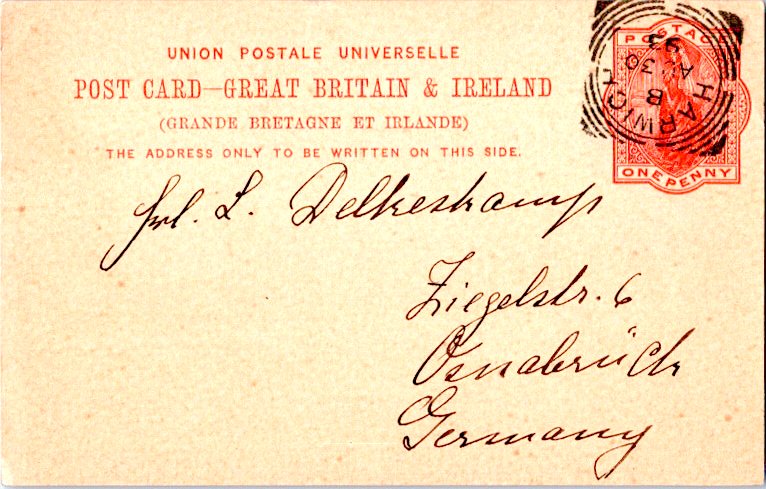 UNION POSTALE UNIVERSELLE
POST CARD—GREAT BRITAIN & IRELAND
(GRANDE BRETAGNE ET IRLANDE)
THE ADDRESS ONLY TO BE WRITTEN ON THIS SIDE.
POSTAGE
ONE PENNY
HARWICH
B
30
93
Frl. L. Delkeskamp
Ziegelstr. 6
Osnabrück
Germany